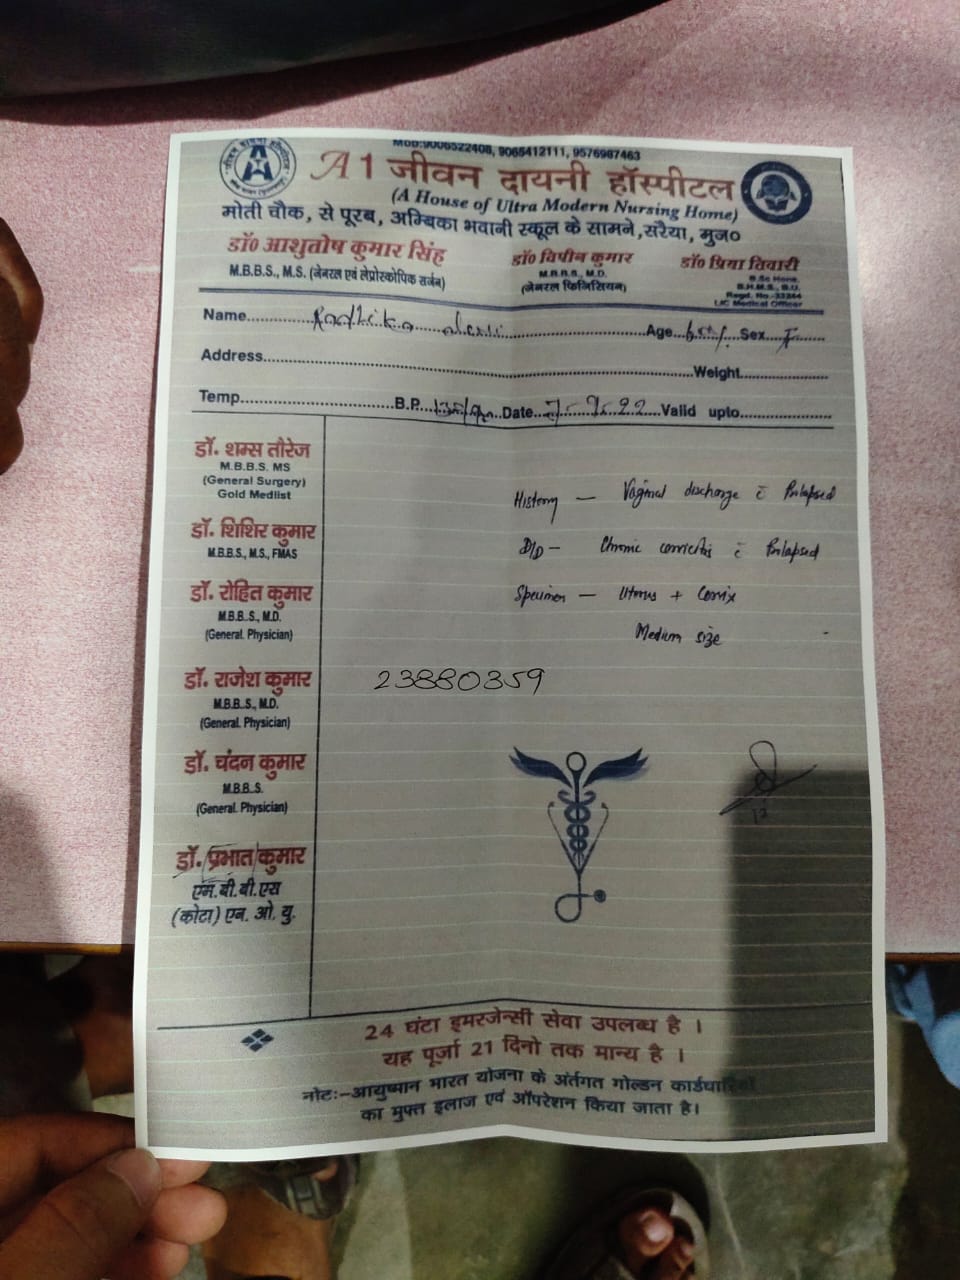 MOB:9006522408, 9065412111, 9576987463
A 1 जीवन दायनी हॉस्पीटल
(A House of Ultra Modern Nursing Home)
मोती चौक, से पूरब, अम्बिका भवानी स्कूल के सामने, सरैया, मुज०
डॉ० आशुतोष कुमार सिंह
M.B.B.S., M.S. (जेनरल एवं लेप्रोस्कोपिक सर्जन)
डॉ० विपीन कुमार
M.B.B.S., M.D.
(जेनरल फिजिसियन)
डॉ० प्रिया तिवारी
B.Sc Hons.
B.H.M.S., B.U.
Regd. No.-33244
LIC Medical Officer
Name Radhika Devi Age Sex F
Address
Weight
Temp. B.P. Date 7-9-22 Valid upto
डॉ. शम्स तौरेज
M.B.B.S. MS
(General Surgery)
Gold Medlist
डॉ. शिशिर कुमार
M.B.B.S., M.S., FMAS
डॉ. रोहित कुमार
M.B.B..S., M.D.
(General. Physician)
डॉ. राजेश कुमार
M.B.B..S., M.D.
(General. Physician)
डॉ. चंदन कुमार
M.B.B..S.
(General. Physician)
डॉ. प्रभात कुमार
एम.बी.बी.एस
(कोटा) एन. ओ. यु.
History — Vaginal discharge c̄ Prolapsed
D/D — Chronic cervicitis c̄ Prolapsed
Specimen — Uterus + Cervix
Medium size
23880359
24 घंटा इमरजेन्सी सेवा उपलब्ध है ।
यह पूर्जा 21 दिनो तक मान्य है ।
नोटः–आयुष्मान भारत योजना के अंर्तगत गोल्डन कार्डधारियों
का मुफ्त इलाज एवं ऑपरेशन किया जाता है।